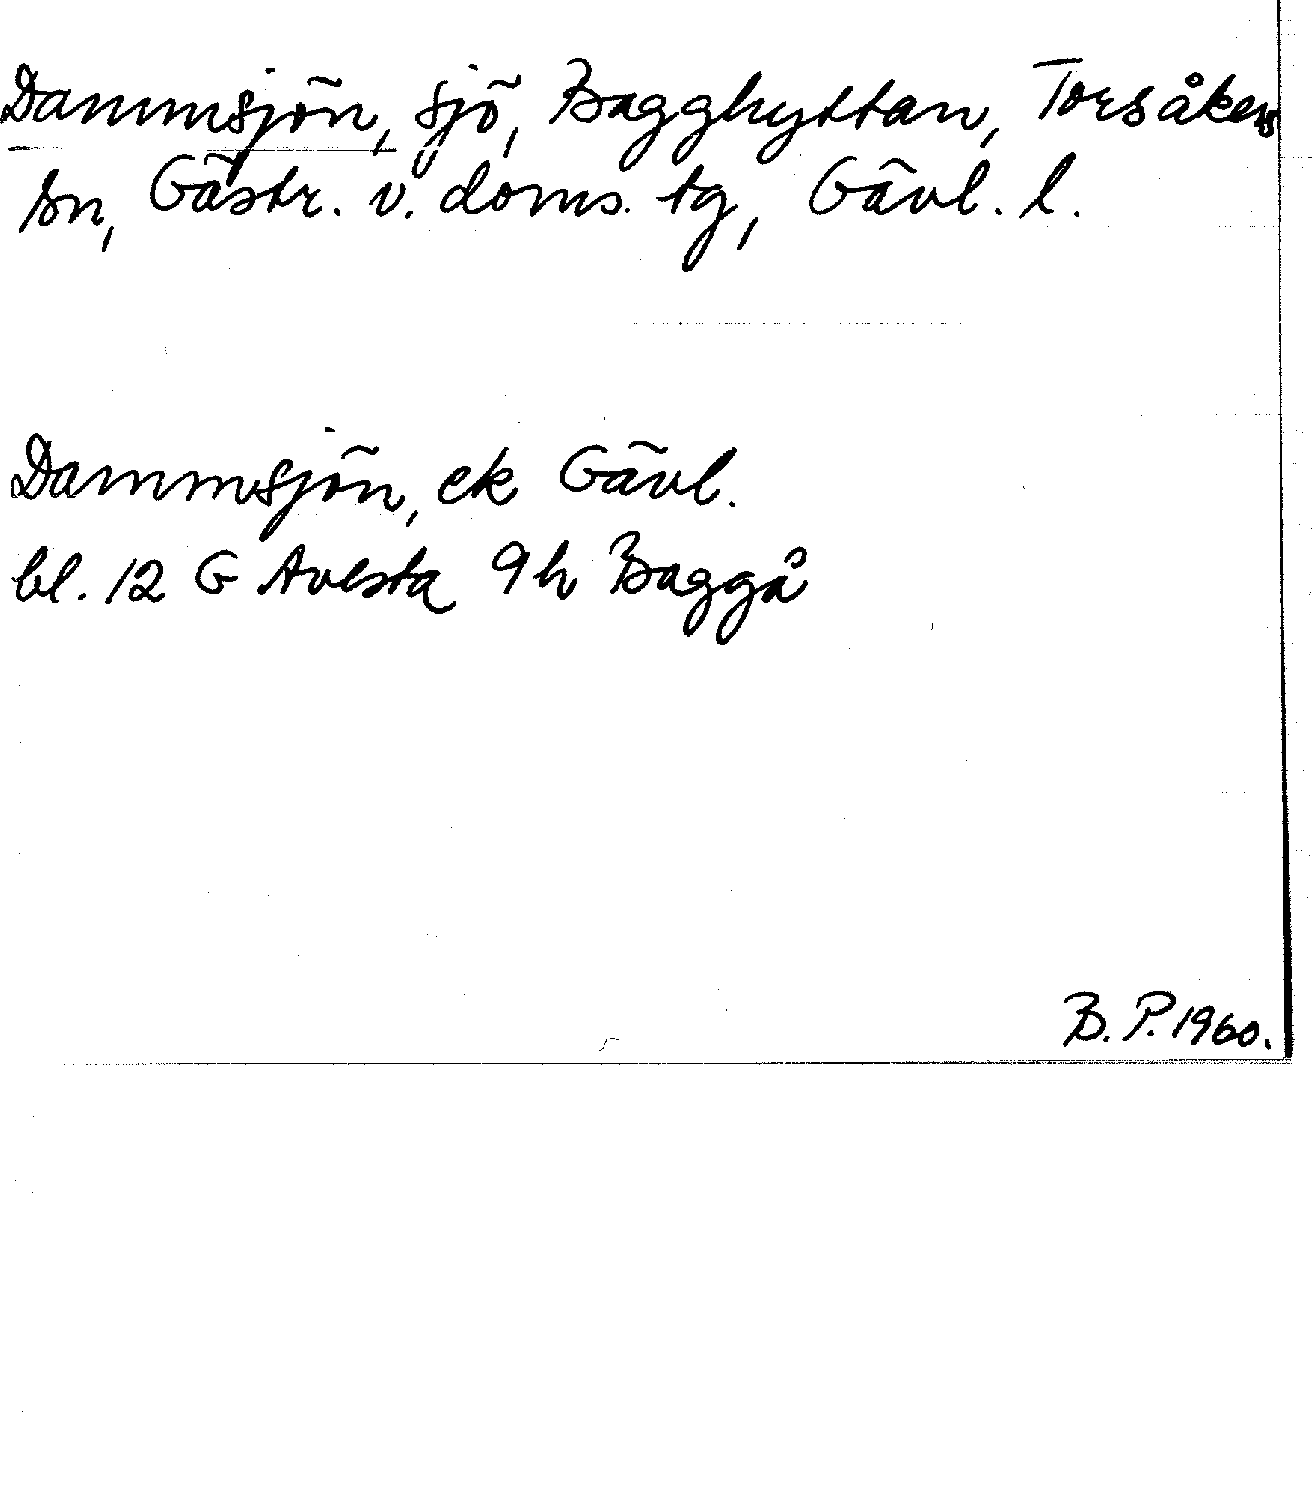 Dammsjön, sjö, Bagghyttan, Torsåkers
sn, Gästr. v. doms. tg, Gävl. l.
Dammsjön, ek Gävl.
bl. 12 G Avesta 9 h Baggå
B. P. 1960.